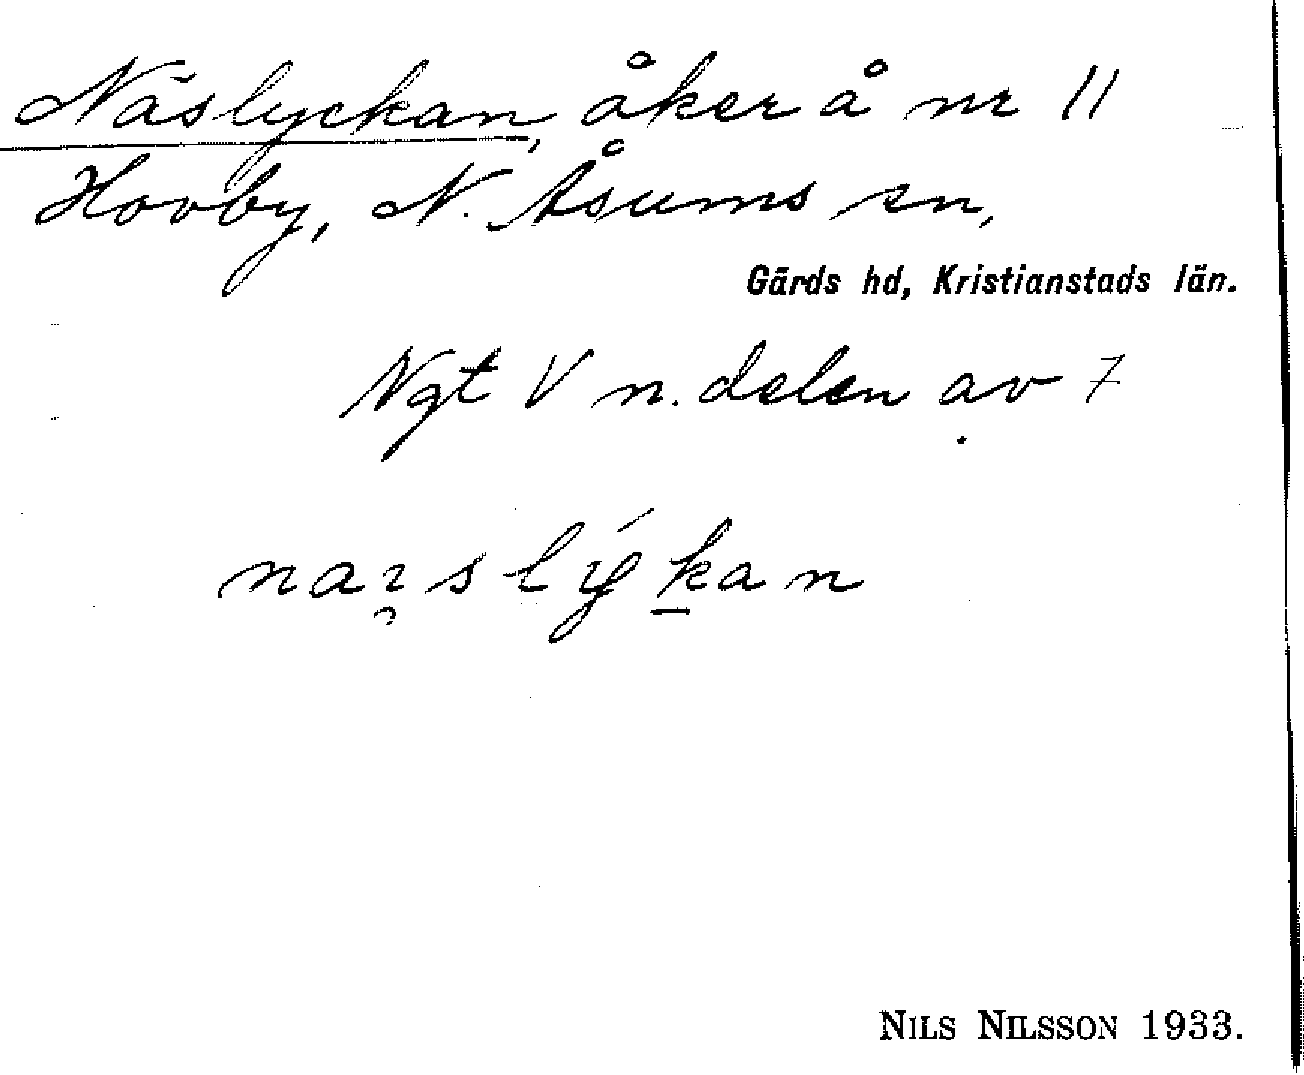 Näslyckan, åker å nr 11
Hovby, N. Åsums sn,
Gärds hd, Kristianstads län.
Ngt V n. delen av 7
Nils Nilsson 1933.